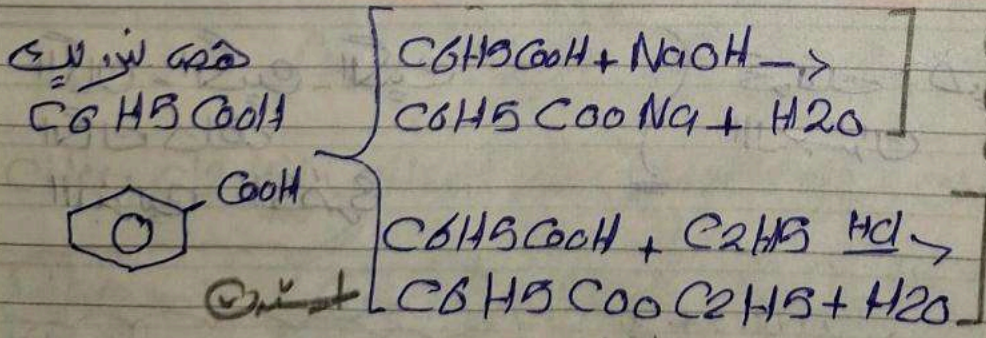 حمض بنزويك
C6H5COOH
COOH
C6H5COOH + NaOH →
C6H5COONa + H2O
C6H5COOH + C2H5 HCl →
C6H5COOC2H5 + H2O